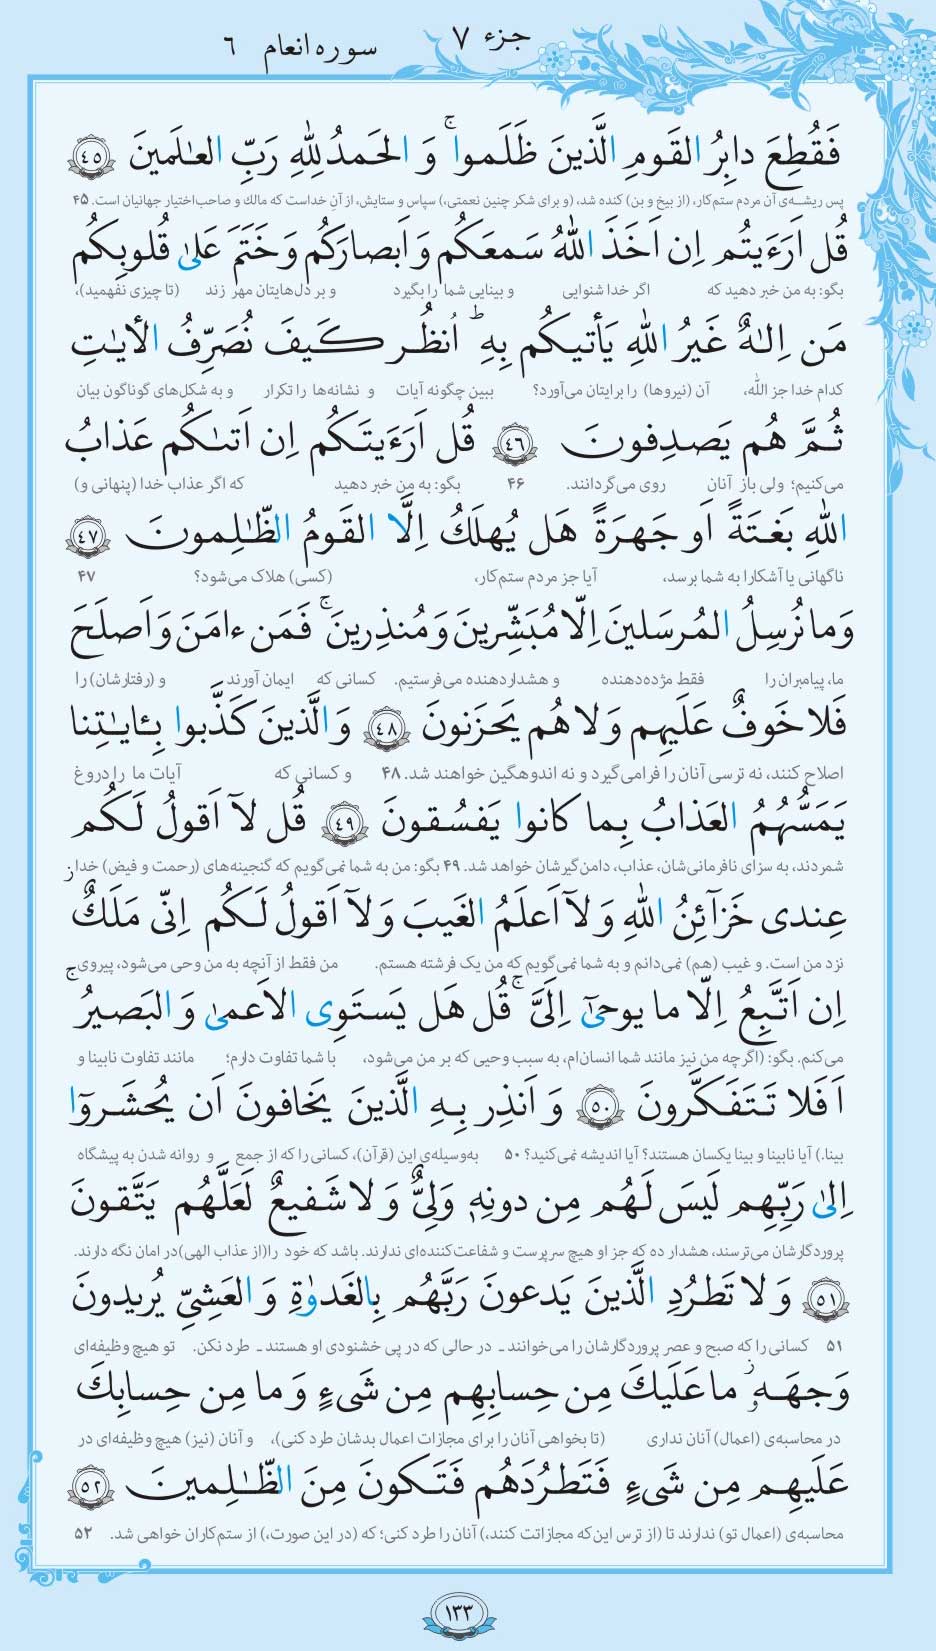 جزء ۷
سوره انعام ۶
فَقُطِعَ دابِرُ القَومِ الَّذينَ ظَلَموا ۚ وَ الحَمدُ لِلّٰهِ رَبِّ العالَمينَ ﴿۴۵﴾
پس ریشه‌ی آن مردم ستم‌کار، (از بیخ و بن) کنده شد، (و برای شکر چنین نعمتی،) سپاس و ستایش، از آنِ خداست که مالک و صاحب‌اختیار جهانیان است. ۴۵
قُل اَرَءَيتُم اِن اَخَذَ اللّٰهُ سَمعَكُم وَ اَبصارَكُم وَ خَتَمَ عَلىٰ قُلوبِكُم
بگو: به من خبر دهید که اگر خدا شنوایی و بینایی شما را بگیرد و بر دل‌هایتان مهر زند (تا چیزی نفهمید)،
مَن اِلـٰهٌ غَيرُ اللّٰهِ يَأتيكُم بِهِ ۗ اُنظُر كَيفَ نُصَرِّفُ الأياتِ
کدام خدا جز اللّٰه، آن (نیروها) را برایتان می‌آورد؟ ببین چگونه آیات و نشانه‌ها را تکرار و به شکل‌های گوناگون بیان
ثُمَّ هُم يَصدِفونَ ﴿۴۶﴾ قُل اَرَءَيتَكُم اِن اَتىٰكُم عَذابُ
می‌کنیم؛ ولی باز آنان روی می‌گردانند. ۴۶ بگو: به من خبر دهید که اگر عذاب خدا (پنهانی و)
اللّٰهِ بَغتَةً اَو جَهرَةً هَل يُهلَكُ اِلَّا القَومُ الظّٰلِمونَ ﴿۴۷﴾
ناگهانی یا آشکارا به شما برسد، آیا جز مردم ستم‌کار، (کسی) هلاک می‌شود؟ ۴۷
وَ ما نُرسِلُ المُرسَلينَ اِلّا مُبَشِّرينَ وَ مُنذِرينَ ۚ فَمَن ءامَنَ وَ اَصلَحَ
ما، پیامبران را فقط مژده‌دهنده و هشداردهنده می‌فرستیم. کسانی که ایمان آورند و (رفتارشان) را
فَلا خَوفٌ عَلَيهِم وَ لا هُم يَحزَنونَ ﴿۴۸﴾ وَ الَّذينَ كَذَّبوا بِـٔاياتِنا
اصلاح کنند، نه ترسی آنان را فرامی‌گیرد و نه اندوهگین خواهند شد. ۴۸ و کسانی که آیات ما را دروغ
يَمَسُّهُمُ العَذابُ بِما كانوا يَفسُقونَ ﴿۴۹﴾ قُل لآ اَقولُ لَكُم
شمردند، به سزای نافرمانی‌شان، عذاب، دامن‌گیرشان خواهد شد. ۴۹ بگو: من به شما نمی‌گویم که گنجینه‌های (رحمت و فیض) خدا
عِندى خَزآئِنُ اللّٰهِ وَ لآ اَعلَمُ الغَيبَ وَ لآ اَقولُ لَكُم اِنّى مَلَكٌ ۖ
نزد من است. و غیب (هم) نمی‌دانم و به شما نمی‌گویم که من یک فرشته هستم. من فقط از آنچه به من وحی می‌شود، پیروی
اِن اَتَّبِعُ اِلّا ما يوحىٰٓ اِلَىَّ ۚ قُل هَل يَستَوِى الاَعمىٰ وَ البَصيرُ ۚ
می‌کنم. بگو: (اگرچه من نیز مانند شما انسان‌ام، به سبب وحیی که بر من می‌شود، با شما تفاوت دارم؛ مانند تفاوت نابینا و
اَفَلا تَتَفَكَّرونَ ﴿۵۰﴾ وَ اَنذِر بِهِ الَّذينَ يَخافونَ اَن يُحشَروٓا
بینا.) آیا نابینا و بینا یکسان هستند؟ آیا اندیشه نمی‌کنید؟ ۵۰ به‌وسیله‌ی این (قرآن)، کسانی را که از جمع و روانه شدن به پیشگاه
اِلىٰ رَبِّهِم لَيسَ لَهُم مِن دونِهٖ وَلِىٌّ وَ لا شَفيعٌ لَعَلَّهُم يَتَّقونَ
پروردگارشان می‌ترسند، هشدار ده که جز او هیچ سرپرست و شفاعت‌کننده‌ای ندارند. باشد که خود را(از عذاب الهی)در امان نگه دارند.
﴿۵۱﴾ وَ لا تَطرُدِ الَّذينَ يَدعونَ رَبَّهُم بِالغَدوٰةِ وَ العَشِىِّ يُريدونَ
۵۱ کسانی را که صبح و عصر پروردگارشان را می‌خوانند ـ در حالی که در پی خشنودی او هستند ـ طرد نکن. تو هیچ وظیفه‌ای
وَجهَهٗ ۖ ما عَلَيكَ مِن حِسابِهِم مِن شَىءٍ وَ ما مِن حِسابِكَ
در محاسبه‌ی (اعمال) آنان نداری (تا بخواهی آنان را برای مجازات اعمال بدشان طرد کنی)، و آنان (نیز) هیچ وظیفه‌ای در
عَلَيهِم مِن شَىءٍ فَتَطرُدَهُم فَتَكونَ مِنَ الظّٰلِمينَ ﴿۵۲﴾
محاسبه‌ی (اعمال تو) ندارند تا (از ترس این‌که مجازاتت کنند،) آنان را طرد کنی؛ که (در این صورت،) از ستم‌کاران خواهی شد. ۵۲
۱۳۳